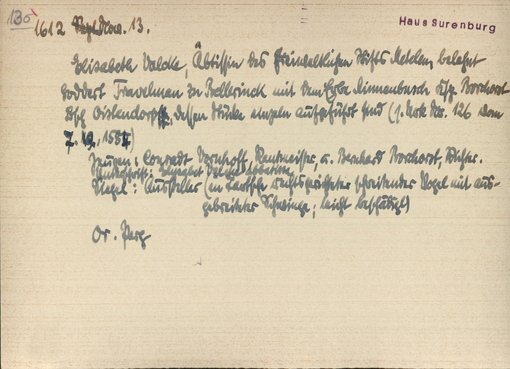 130
1612 Nov. 13.
Haus Surenburg
Elisabeth Valcke, Äbtissin des Freiweltlichen Stifts Metelen, belehnt
Goddert Travelman zu mit dem Erbe Kspl. Borchorst
Bsch. Ostendorp, dessen Stücke einzeln aufgeführt sind (s. Urk. Nr. 126 vom
7. 1587)
Zeugen: Conradt Rentmeister, u. Bernhard Borchorst, Richter.
Unterschrift: Elisabet Abdissin
Siegel: Ausstellers (im rechtsgerichteter schreitender Vogel mit aus-
gebreiteter Schwinge; leicht beschädigt)
Or. Perg.